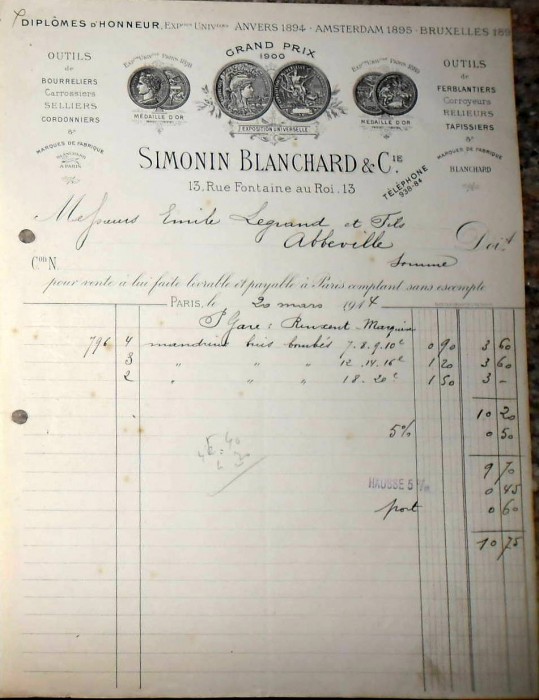 DIPLÔMES D'HONNEUR, EXPONS UNIVLLES ANVERS 1894 · AMSTERDAM 1895 · BRUXELLES 189
OUTILS
de
BOURRELIERS
Carrossiers
SELLIERS
CORDONNIERS
&a
MARQUES DE FABRIQUE
BLANCHARD
A PARIS
MÉDAILLE D'OR
GRAND PRIX
1900
EXPOSITION UNIVERSELLE
MÉDAILLE D'OR
OUTILS
de
FERBLANTIERS
Corroyeurs
RELIEURS
TAPISSIERS
&a
MARQUES DE FABRIQUE
BLANCHARD
SIMONIN BLANCHARD & CIE
13, Rue Fontaine au Roi. 13
TÉLÉPHONE
938-84
Messieurs Emile Legrand et Fils
Abbeville Doit
Somme
Con N.
pour vente à lui faite livrable et payable à Paris comptant sans escompte
PARIS, le 20 mars 1914
Gare:
796 4 mandrins buis bombés 7.8.9.10c 0 90 3 60
3 " " " 12.14.16c 1 20 3 60
2 " " " 18.20c 1 50 3 -
10 20
5% 0 50
9 70
HAUSSE 5 % 0 45
port 0 60
10 75